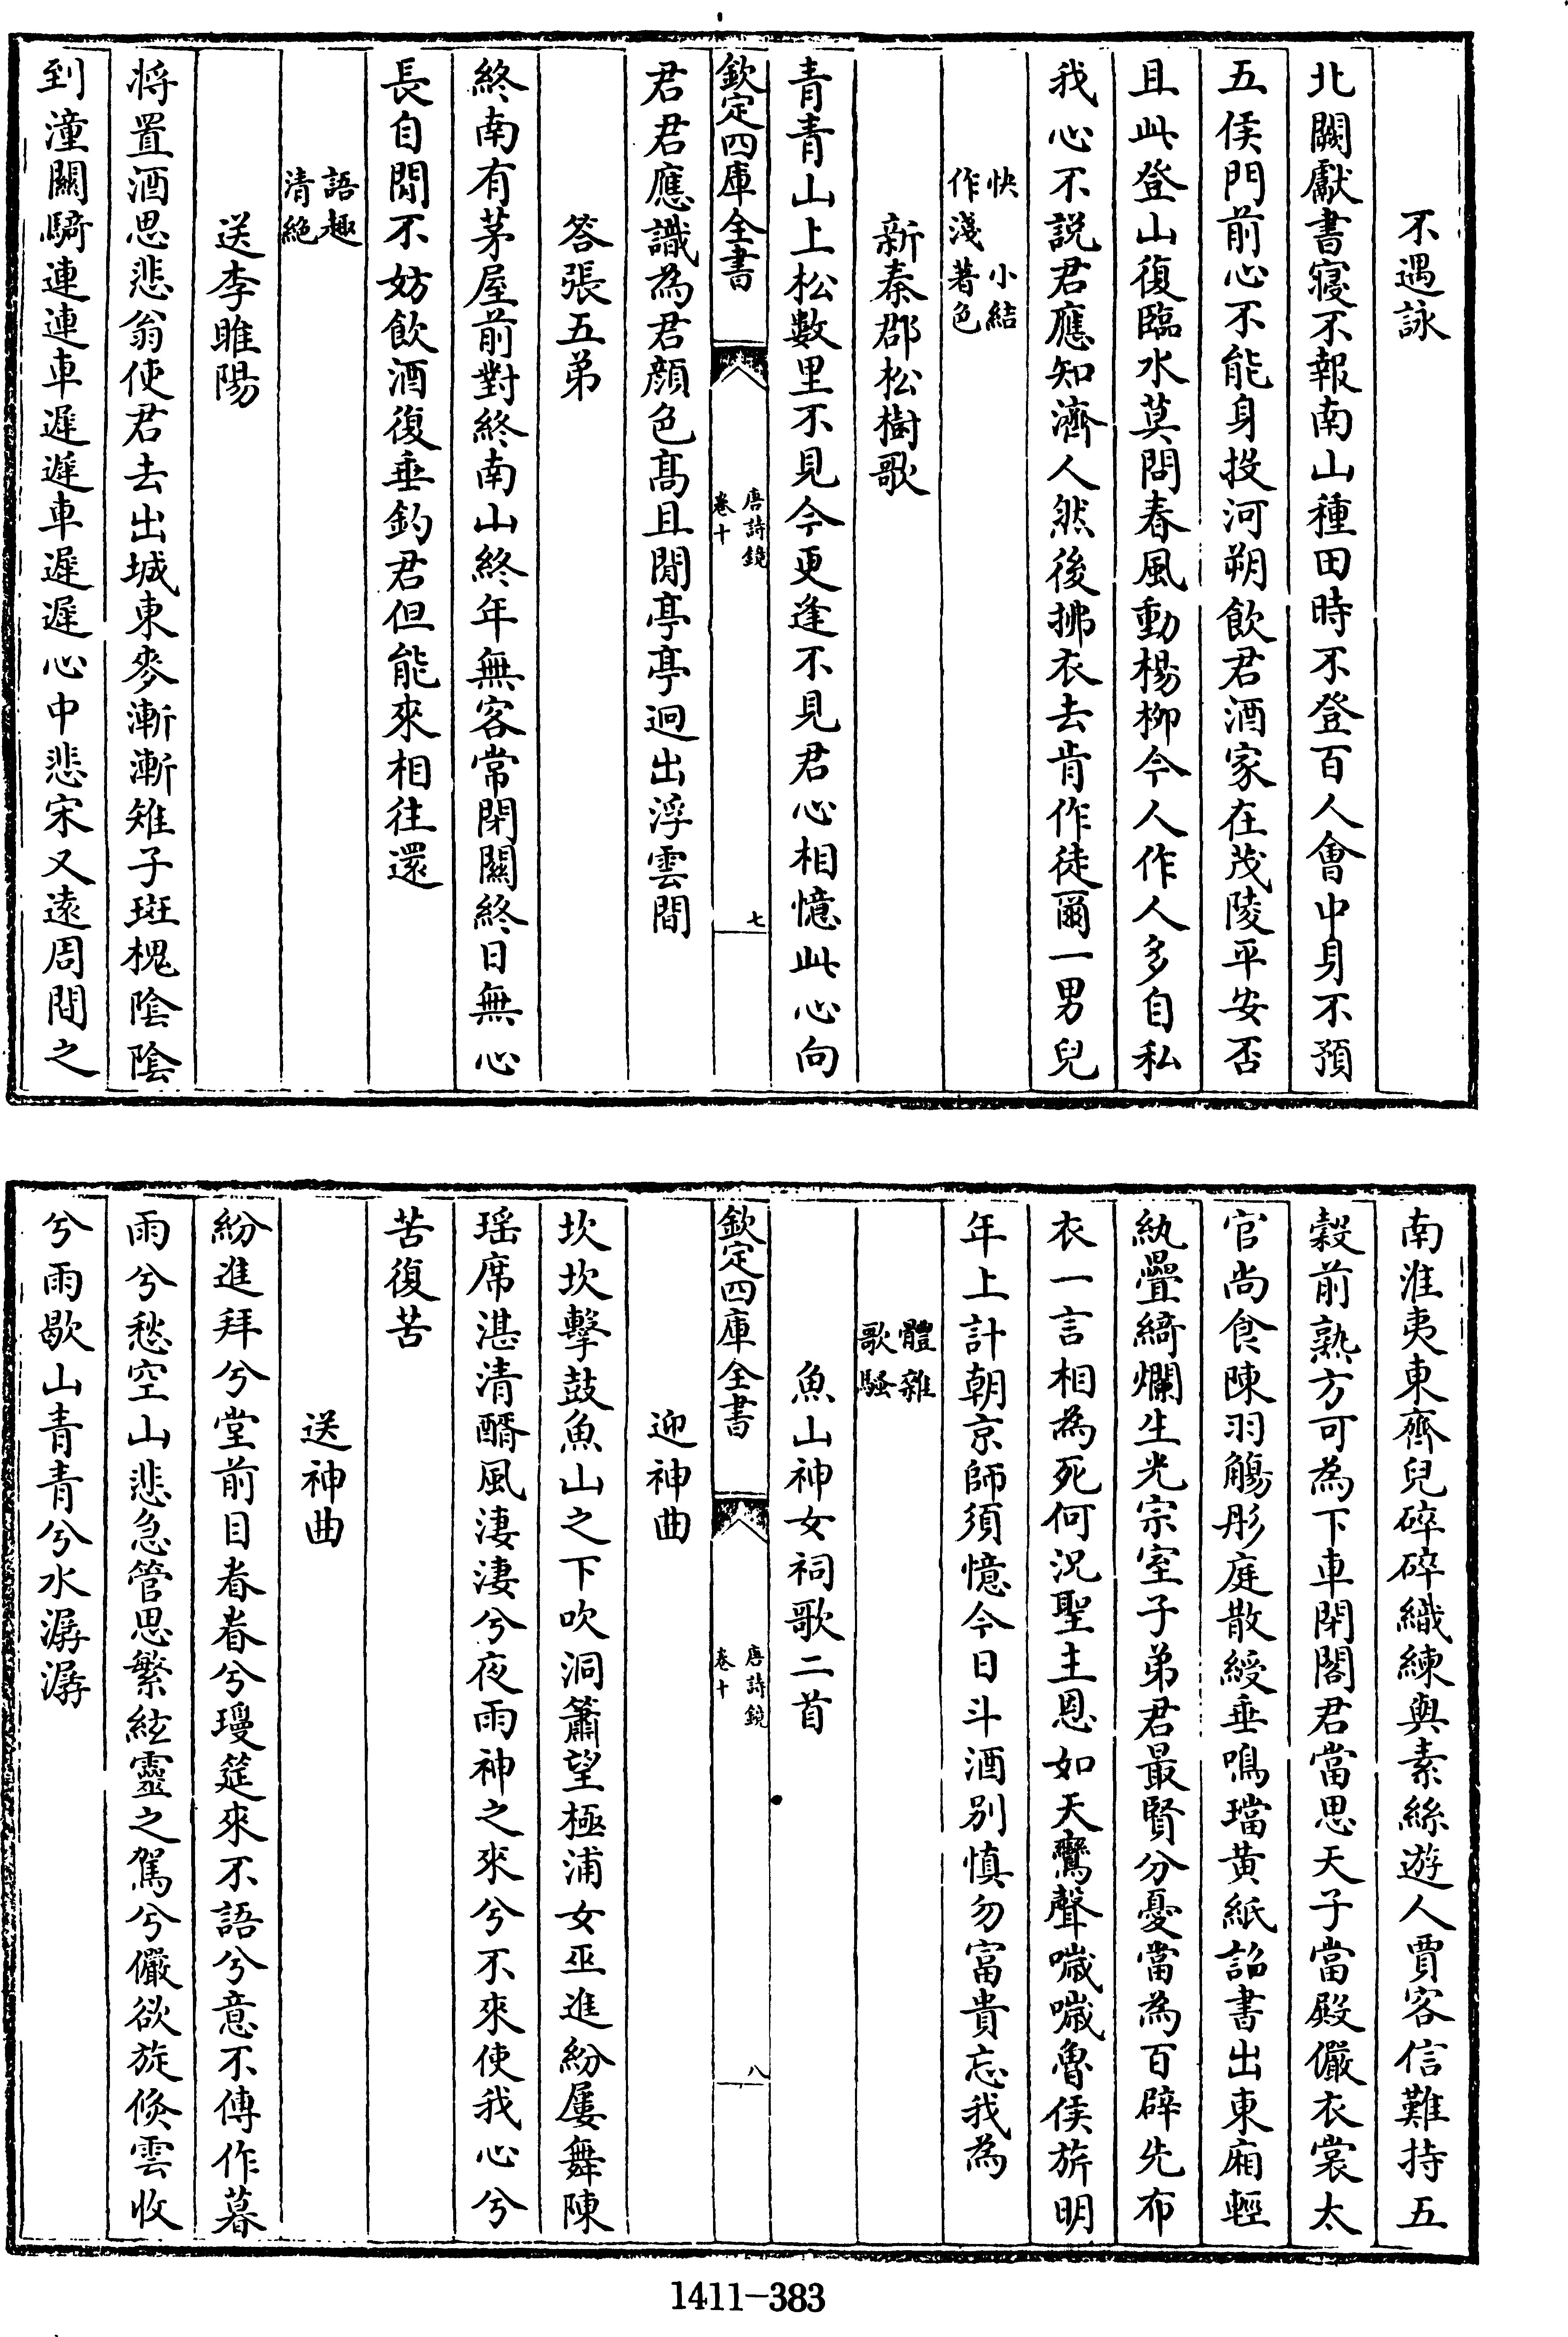 不遇詠
北闕獻書寢不報南山種田時不登百人會中身不預
五侯門前心不能身投河朔飲君酒家在茂陵平安否
且此登山復臨水莫問春風動楊柳今人作人多自私
我心不說君應知濟人然後拂衣去肯作徒爾一男兒
快　小結
作淺著色
新秦郡松樹歌
青青山上松數里不見今更逢不見君心相憶此心向
欽定四庫全書
唐詩鏡
卷十
七
君君應識為君顔色髙且閒亭亭迥出浮雲間
答張五弟
終南有茅屋前對終南山終年無客常閉關終日無心
長自閒不妨飲酒復垂釣君但能來相往還
語趣
清絶
送李睢陽
将置酒思悲翁使君去出城東麥漸漸雉子斑槐陰陰
到潼關騎連連車遲遲車遲遲心中悲宋又遠周間之
南淮夷東齊兒碎碎織練與素絲遊人賈客信難持五
穀前熟方可為下車閉閤君當思天子當殿儼衣裳太
官尚食陳羽觴彤庭散綬垂鳴璫黄紙詔書出東廂輕
紈疊綺爛生光宗室子弟君最賢分憂當為百辟先布
衣一言相為死何況聖主恩如天鸞聲噦噦魯侯旂明
年上計朝京師須憶今日斗酒别慎勿富貴忘我為
體雜
歌騷
魚山神女祠歌二首
欽定四庫全書
唐詩鏡
卷十
八
迎神曲
坎坎擊鼓魚山之下吹洞簫望極浦女巫進紛屢舞陳
瑶席湛清酤風淒淒兮夜雨神之來兮不來使我心兮
苦復苦
送神曲
紛進拜兮堂前目眷眷兮瓊筵來不語兮意不傳作暮
雨兮愁空山悲急管思繁絃靈之駕兮儼欲旋倏雲收
兮雨歇山青青兮水潺潺
1411-383